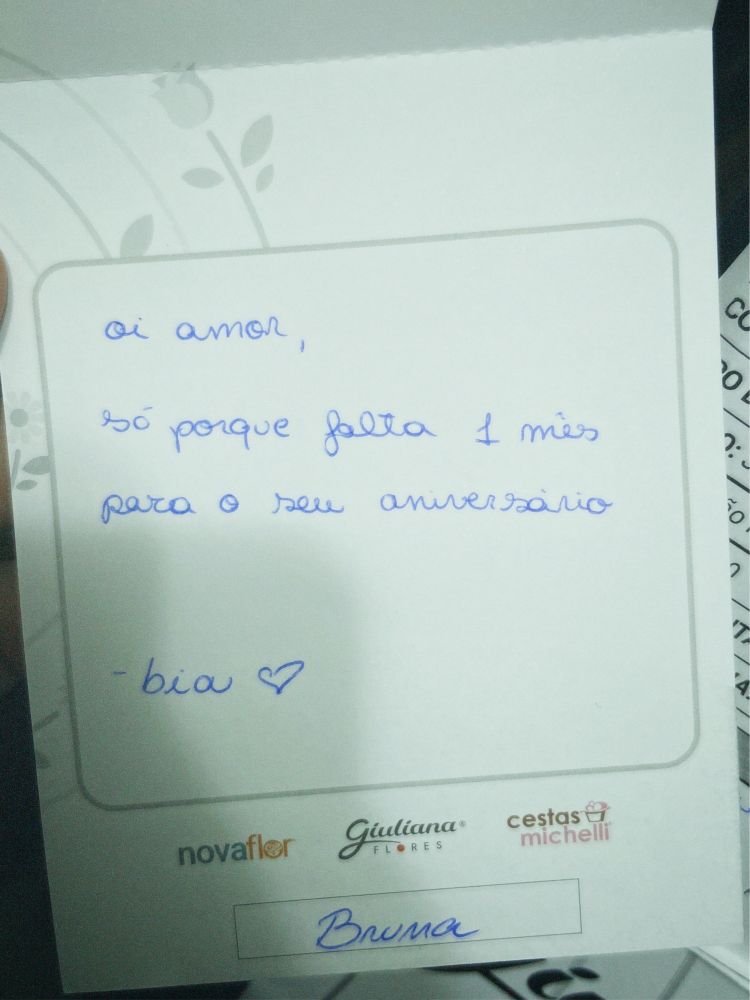 oi amor,
só porque falta 1 mês
para o seu aniversário
- bia ♡
novaflor
Giuliana®
FLORES
cestas
michelli
Bruna